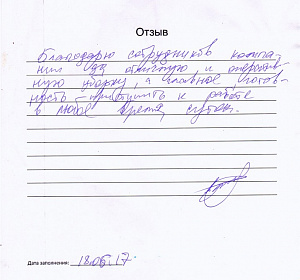 Отзыв
Благодарю сотрудников компа-
нии за отличную и оператив-
ную уборку, а главное готов-
ность приступить к работе
в любое время суток.
Дата заполнения: 18.05.17.